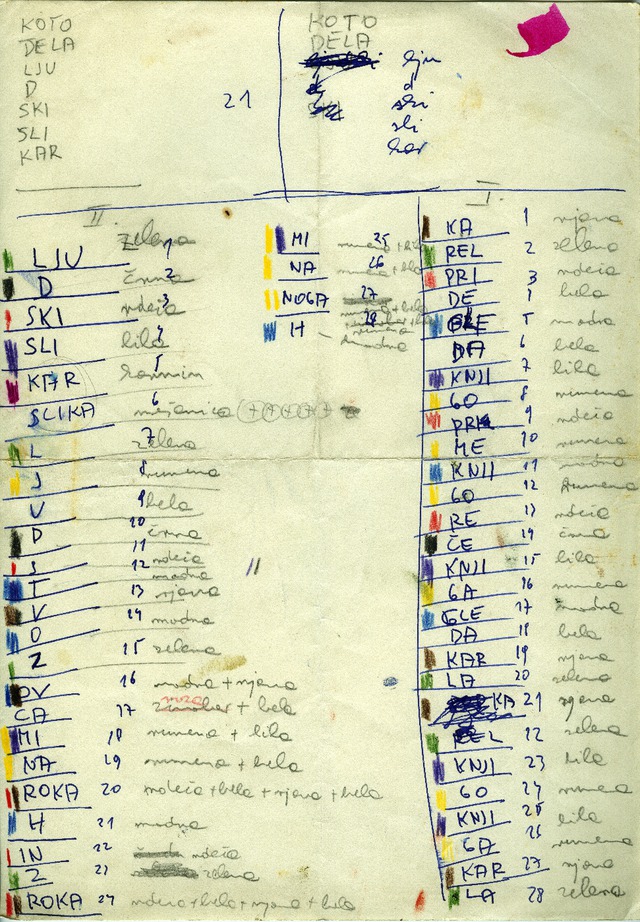 KOTO
DELA
LJU
D
SKI
SLI
KAR
21
KOTO
DELA
lju
d
ski
sli
kar
II
LJU zelena 1
D črna 2
SKI rdeča 3
SLI lila
KAR 5
SLIKA 6
L 7 zelena
J 8 rumena
V 9 bela
D 10 črna
11 rdeča
T 12 modra
V 13 rjava
O 14 modra
Z 15 zelena
OV 16 modra + rjava
CA 17 + bela
MI 18 rumena + lila
NA 19 rumena + bela
ROKA 20 rdeča + bela + rjava + bela
H 21 modra
IN 22 rdeča
Z 23 zelena
ROKA 24 rdeča + bela + rjava + bela
MI 25
NA 26
NOGA 27
H 28 modra
I
KA 1 rjava
REL 2 zelena
PRI 3 rdeča
DE bela
5 modra
DA 6 bela
KNJI 7 lila
GO 8 rumena
9 rdeča
ME 10 rumena
KNJI 11 modra
GO 12 rumena
RE 13 rdeča
ČE 14 črna
KNJI 15 lila
GA 16 rumena
GLE 17 modra
DA 18 bela
KAR 19 rjava
LA 20 zelena
KA 21 rjava
REL 22 zelena
KNJI 23 lila
GO 24 rumena
KNJI 25 lila
GA 26 rumena
KAR 27 rjava
LA 28 zelena